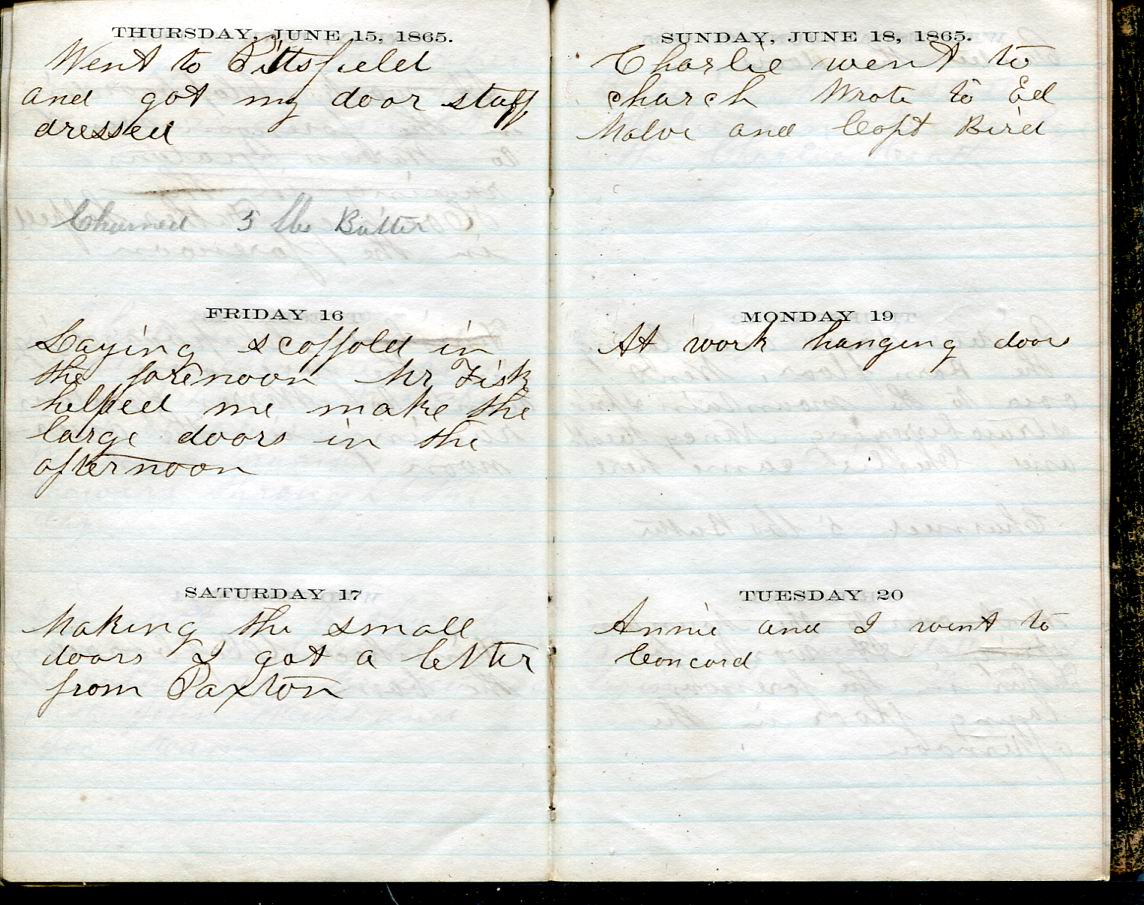 THURSDAY, JUNE 15, 1865.
Went to Pittsfield
and got my door stuff
dressed
Churned 5 lbs Butter
FRIDAY 16
Laying scaffold in
the forenoon Mr Fisk
helped me make the
large doors in the
afternoon
SATURDAY 17
Making the small
doors I got a letter
from Paxton
SUNDAY, JUNE 18, 1865.
Charlie went to
church Wrote to Ed
and Capt Bird
MONDAY 19
At work hanging door
TUESDAY 20
Annie and I went to
Concord